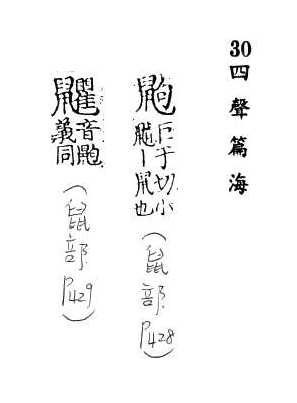 30四聲篇海
鼩
巨于切小
丨鼠也
(鼠部
P428)
音鼩
義同
(鼠部
P429)